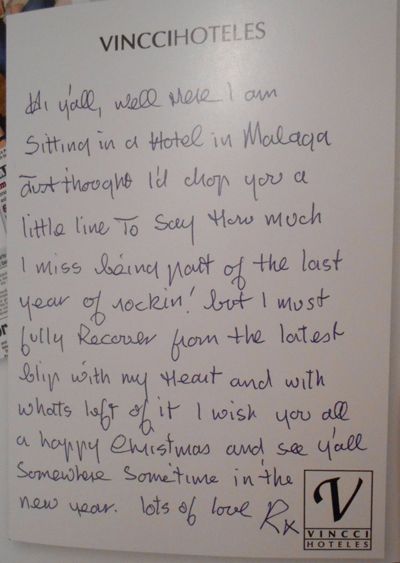 VINCCIHOTELES
Hi y'all, well Here I am
Sitting in a Hotel in Malaga
Just thought I'd drop you a
little line To Say How much
I miss being part of the last
year of rockin! but I must
fully Recover from the latest
blip with my Heart and with
whats left of it I wish you all
a happy Christmas and see y'all
Somewhere Sometime in the
new year. lots of love Rx
V
VINCCI
HOTELES